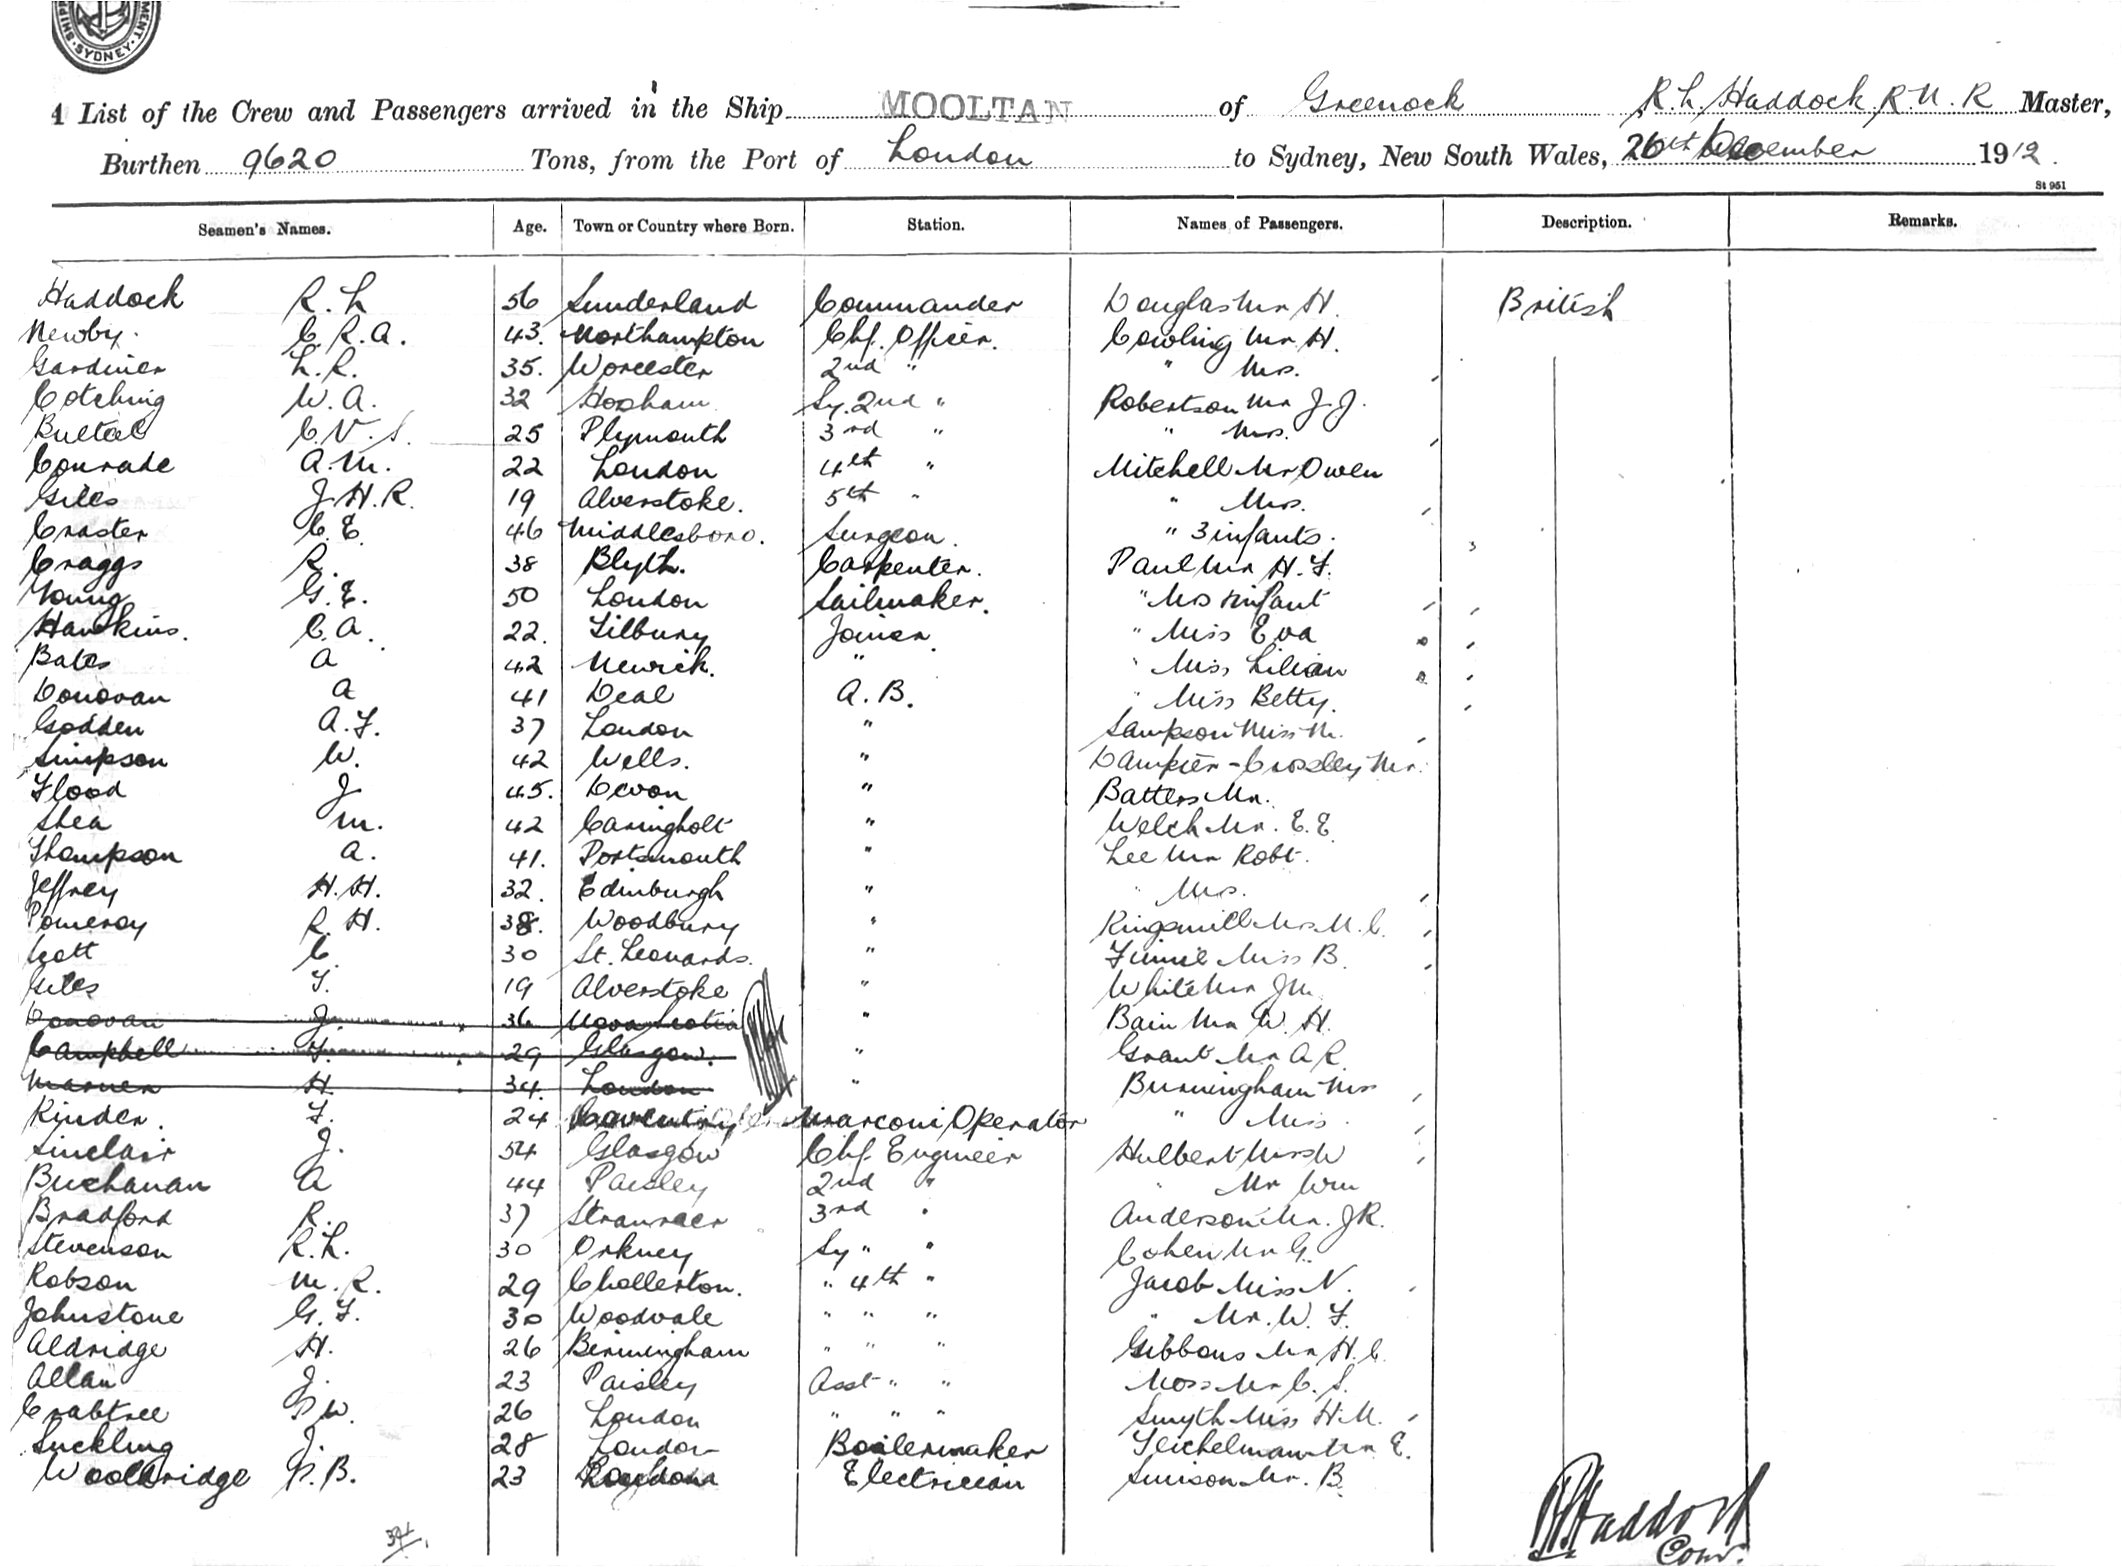 SYDNEY
A List of the Crew and Passengers arrived in the Ship MOOLTAN of Greenock R. L. Haddock R.N.R Master,
Burthen 9620 Tons, from the Port of London to Sydney, New South Wales, 26th December 1912.
St 951
Seamen's Names. Age. Town or Country where Born. Station. Names of Passengers. Description. Remarks.
Haddock R. L 56 Sunderland Commander Douglas Mr H. British
Newby. C. R. A. 43. Northampton Chf. Officer. Cowling Mr H.
Gardiner L. R. 35. Worcester 2nd " " Mrs.
Cotching W. A. 32 Sy. 2nd " Robertson Mr J. J.
C. V. S. 25 Plymouth 3rd " " Mrs.
Conrade A. M. 22 London 4th " Mitchell Mr Owen
Giles J. H. R. 19 Alverstoke. 5th " " Mrs.
Craster C. E. 46 Middlesboro. Surgeon. " 3 infants.
Craggs R. 38 Blyth. Carpenter. Paul Mr H. F.
Young G. E. 50 London Sailmaker. " Mrs & infant
Hawkins. C. A. 22. Tilbury Joiner. " Miss Eva
Bates A 42 Newick. " " Miss Lilian
Donovan A 41 Deal A. B. " Miss Betty.
Godden A. F. 37 London " Sampson Miss M.
Simpson W. 42 Wells. " Dampier-Crossley Mr.
Flood J. 45. Devon " Batters Mr.
Shea M. 42 Caringholt " Welch Mr. E. E.
Thompson A. 41. Portsmouth " Lee Mr Robt.
Jeffrey H. H. 32. Edinburgh " " Mrs.
Pomeroy R. H. 38. Woodbury " Kingsmill Mrs M. C.
C. 30 St. Leonards. " Finnie Miss B.
Giles F. 19 Alverstoke " White Mr J M
Donovan J. 36 Nova Scotia " Bain Mr W. H.
Campbell F. 29 Glasgow. " Grant Mr A R.
Marner H. 34. London " Burningham Mrs
Kinder. F. 24 Coventry Marconi Operator " Miss
Sinclair J. 54 Glasgow Chf. Engineer Hulbert Mrs W
Buchanan A 44 Paisley 2nd " " Mr Wm
Bradford R. 37 Stranraer 3rd " Anderson Mr. J R.
Stevenson R. L. 30 Orkney Sy " " Cohen Mr G.
Robson M. R. 29 Chollerton. " 4th " Jacob Miss N.
Johnstone G. F. 30 Woodvale " " " " Mr. W. F.
Aldridge H. 26 Birmingham " " " Gibbons Mr H. C.
Allan J. 23 Paisley Asst " " Moss Mr C. S.
Crabtree W. 26 London " " " Smyth Miss H. M.
Suckling J. 28 London Boilermaker Teichelmann Mr E.
Wooldridge B. 23 London Electrician Simson Mr. B.
R L Haddock
Comr.